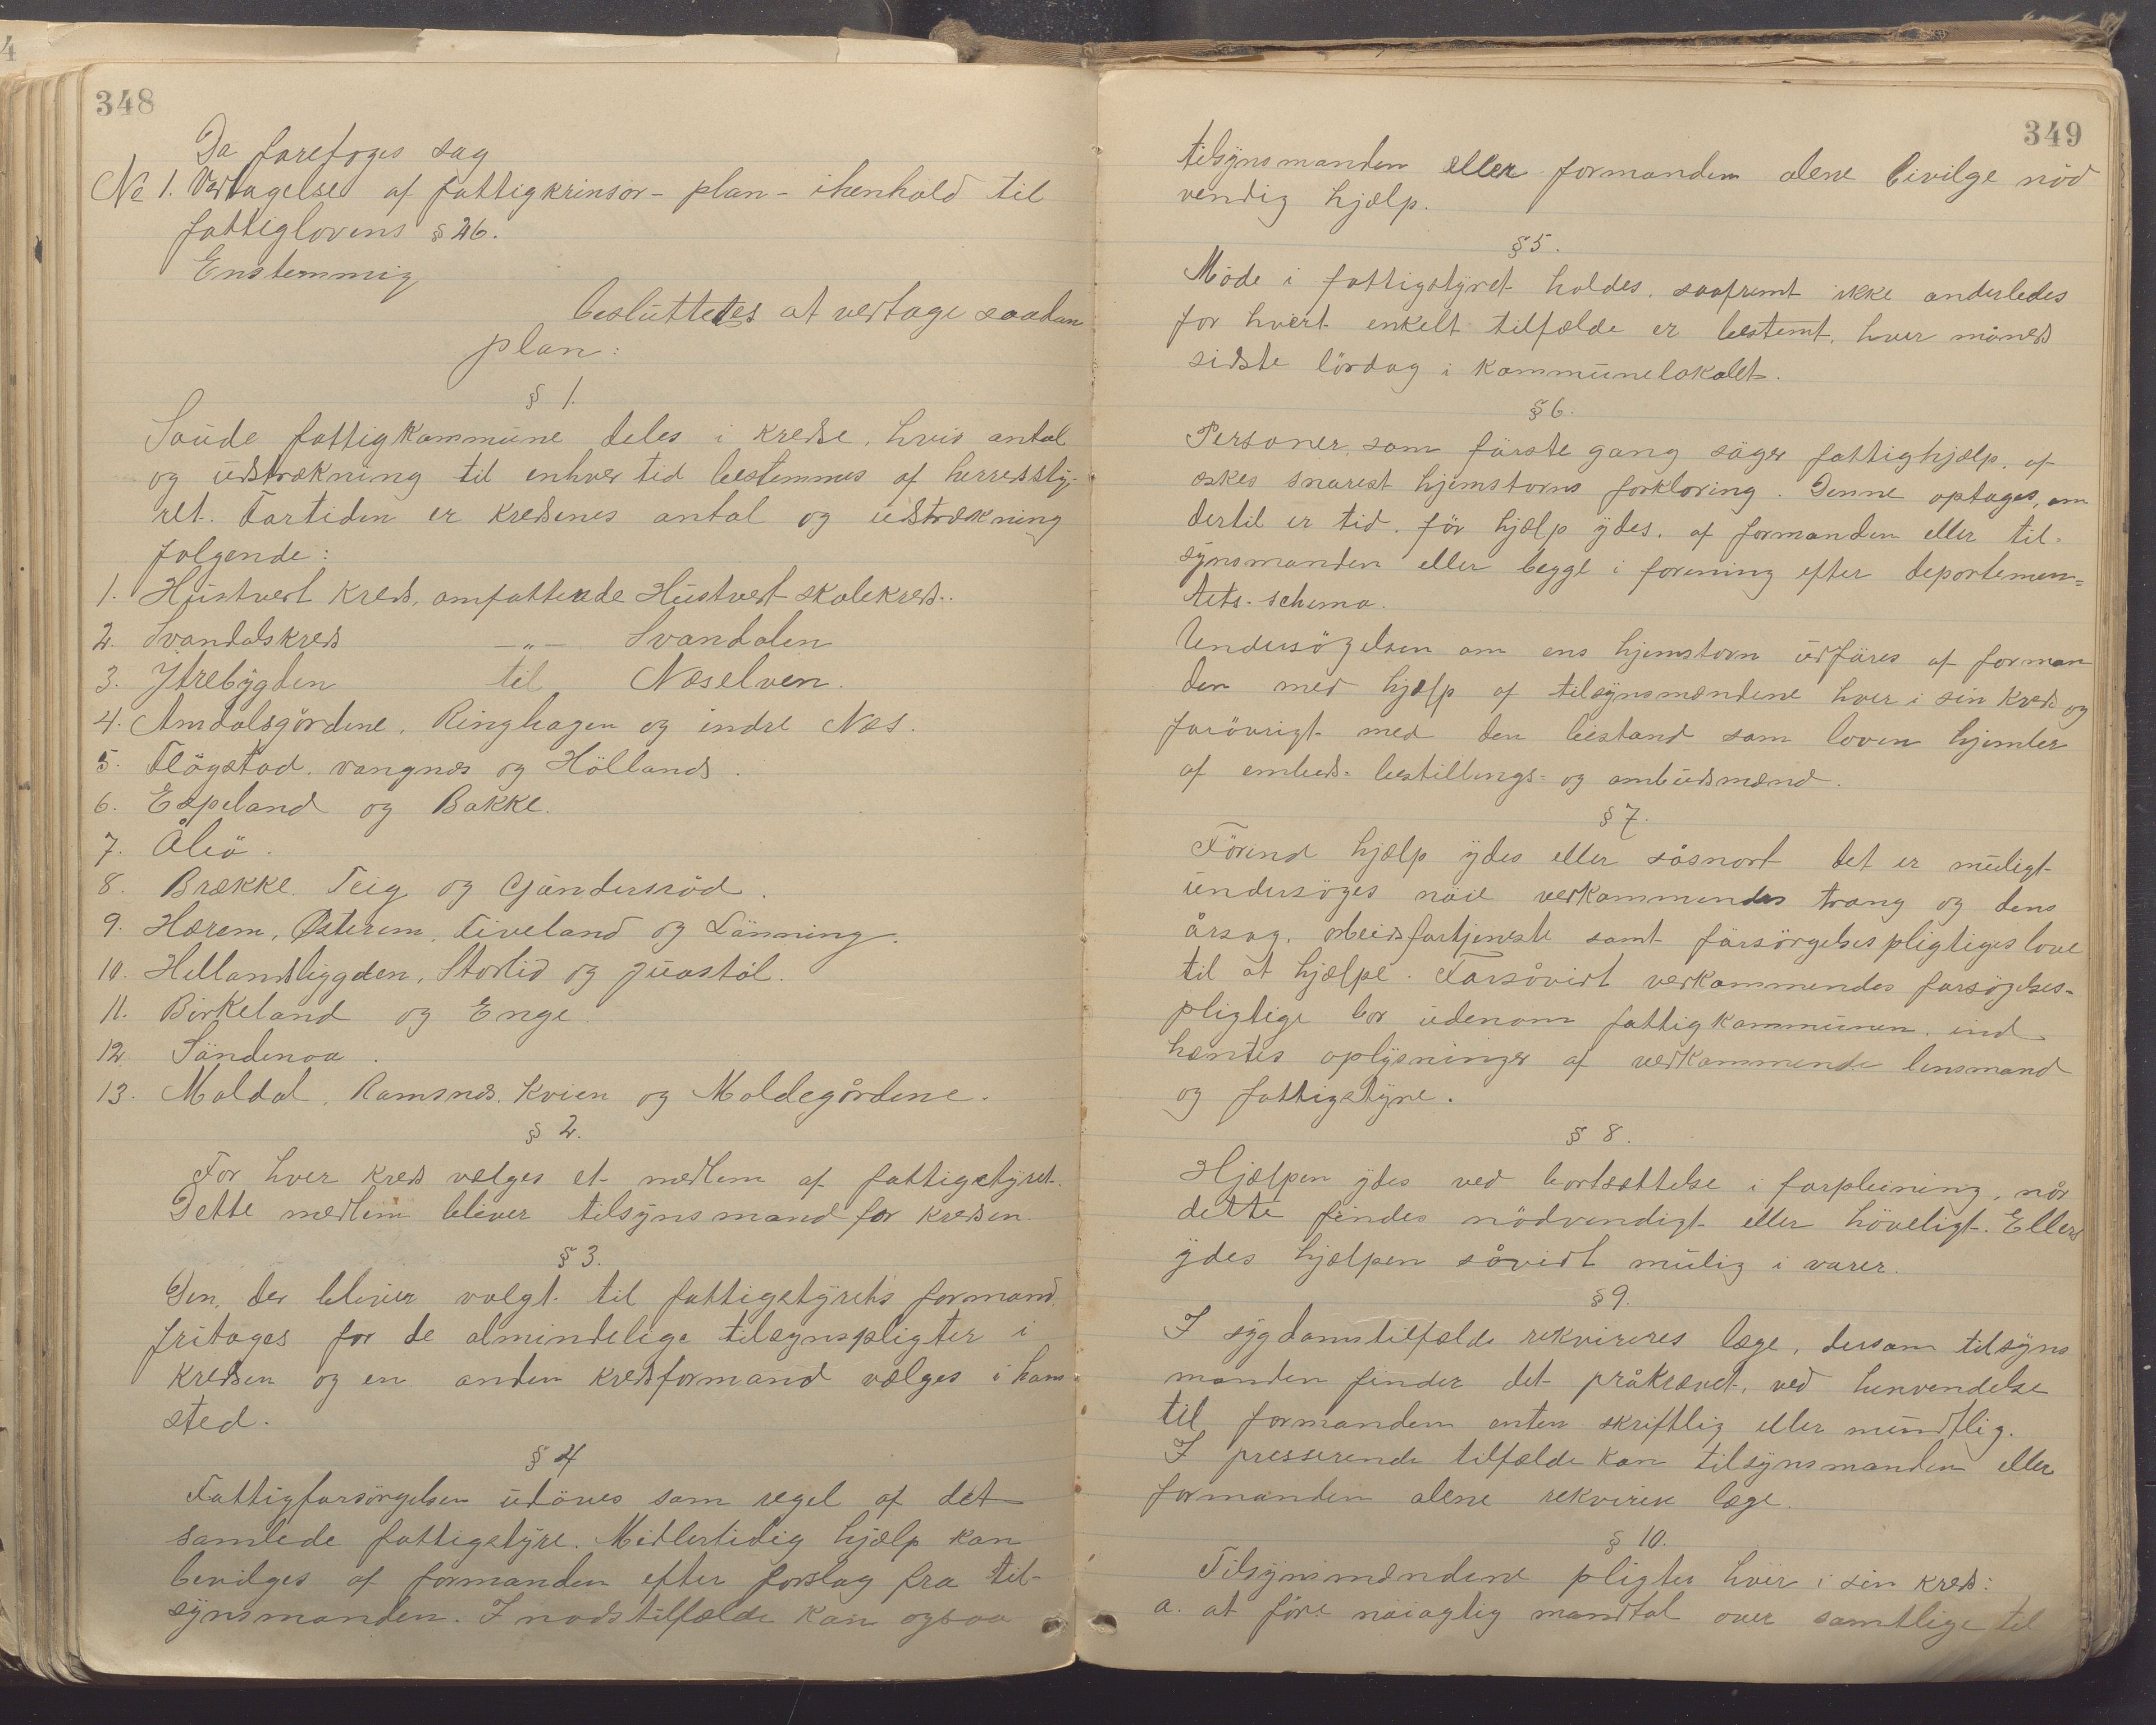 348
Da foretoges sag
No 1. Vedtagelse af fattigkrinsor- plan - ihenhold til
fattiglovens § 26.
Enstemmig
besluttedes at vedtage saadan
plan:
§ 1.
Saude fattigkommune deles i kredse, hvis antal
og udstrækning til enhver tid bestemmes af herredssty-
ret. Fortiden er kredsenes antal og udstrækning
følgende:
1. Hustvedt kreds, omfattende Hustvedt skolekreds.
2. Svandalskreds -„- Svandalen
3. Ytrebygden til Næselven.
4. Amdalsgårdene, Ringhagen og indre Næs.
5. Fløgstad, vangnæs og Hølland.
6. Espeland og Bakke.
7. Åbø.
8. Brække, Teig og Gunderstød.
9. Hærem, Østerem, Tiveland og Lønning.
10. Hellandsbygden, Storlid og Juvastøl.
11. Birkeland og Enge
12. Søndenaa.
13. Maldal, Ramsnæs, Kvien og Moldegårdene.
§ 2.
For hver kreds vælges et medlem af fattigstyret.
Dette medlem bliver tilsynsmand for kredsen.
§ 3.
Den, der bliver valgt til fattigstyrets formand,
fritages for de almindelige tilsynspligter i
kredsen og en anden kredsformand vælges i hans
sted.
§ 4
Fattigforsørgelsen udøves som regel af det
samlede fattigstyre. Midlertidig hjælp kan
bevilges af formanden efter forslag fra til-
synsmanden. I nødstilfælde kan ogsaa
349
tilsynsmanden eller formanden alene bevilge nød
vendig hjælp.
§ 5.
Møde i fattigstyret holdes, saafremt ikke anderledes
for hvert enkelt tilfælde er bestemt, hver måneds
sidste lørdag i kommunelokalet.
§ 6.
Personer, som første gang søger fattighjælp, af
æskes snarest hjemstavns forklaring. Denne optages, om
dertil er tid, før hjælp ydes, af formanden eller til-
synsmanden eller begge i forening efter departemen=
tets schema.
Undersøgelsen om ens hjemstavn udføres af forman
den med hjælp af tilsynsmændene hver i sin kreds og
forøvrigt med den bistand som loven hjemler
af embeds= bestillings= og ombudsmænd.
§ 7.
Førend hjælp ydes eller såsnart det er muligt
undersøges nøie vedkommendes trang og dens
årsag, arbeidsfortjeneste samt forsørgelsespligtiges love
til at hjælpe. Forsåvidt vedkommendes forsørgelses-
pligtige bor udenom fattigkommunen, ind
hæntes oplysninger af vedkommende lensmand
og fattigstyre.
§ 8.
Hjælpen ydes ved bortsættelse i forpleining, når
dette findes nødvendigt eller høveligt. Ellers
ydes hjælpen såvidt mulig i varer.
§ 9.
I sygdomstilfælde rekvireres læge, dersom tilsyns
manden finder det påkrævet, ved henvendelse
til formanden enten skriftlig eller mundtlig.
I presserende tilfælde kan tilsynsmanden eller
formanden alene rekvirere læge.
§ 10.
Tilsynsmændene pligter hver i sin kreds:
a. at føre nøiagtig mandtal over samtlige til